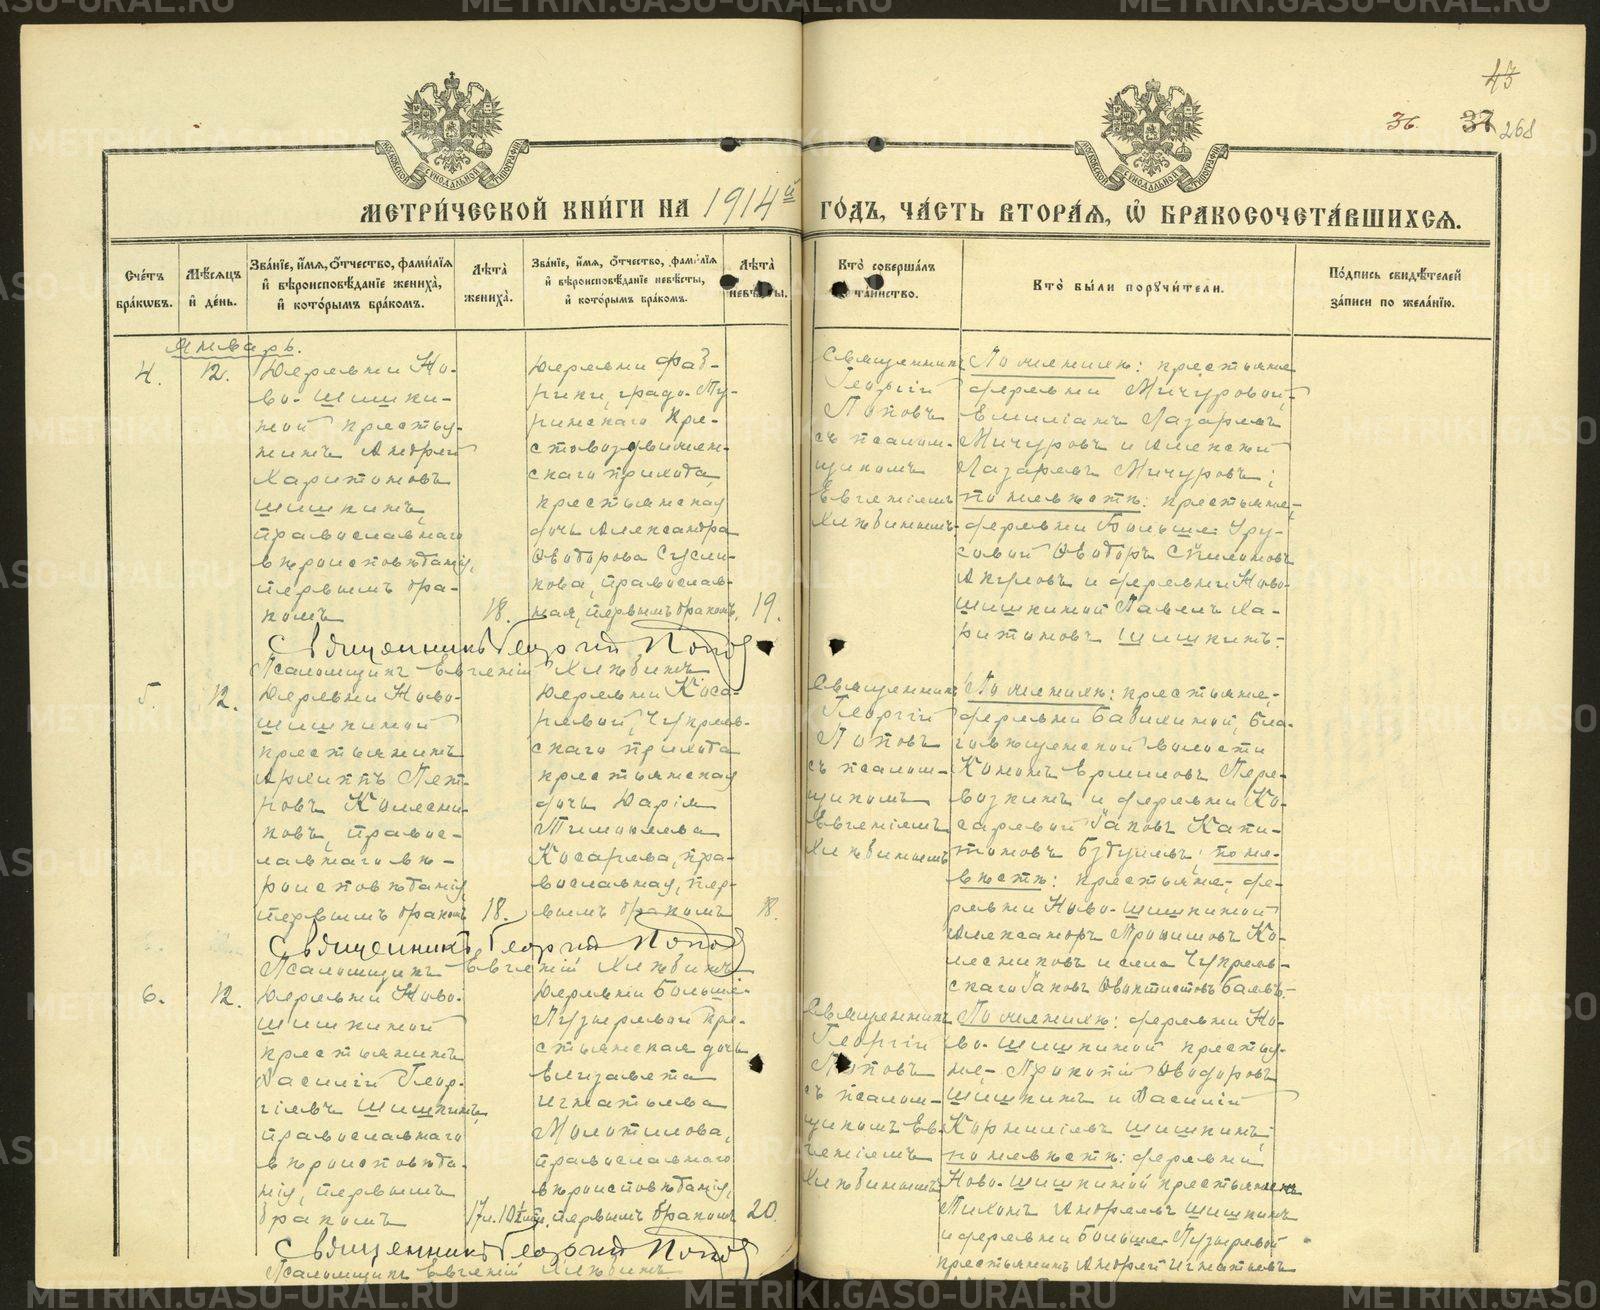 METRIKI.GASO-URAL.RU
43
36. 37 268
МЕТРИ́ЧЕСКОЙ КНИ́ГИ НА 1914й ГО́ДЪ, ЧА́СТЬ ВТОРА́Я, Ѽ БРАКОСОЧЕТА́ВШИХСЯ.
Счетъ браковъ.
Мѣсяцъ и день.
Званіе, имя, отчество, фамилія и вѣроисповѣданіе жениха, и которымъ бракомъ.
Лѣта жениха.
Званіе, имя, отчество, фамилія и вѣроисповѣданіе невѣсты, и которымъ бракомъ.
Лѣта невѣсты.
Кто совершалъ таинство.
Кто были поручители.
Подпись свидѣтелей записи по желанію.
Январь.
4.
12.
Деревни Но-
во-Шишки-
ной крестья-
нинъ Андрей
Харитоновъ
Шишкинъ,
православнаго
вѣроисповѣданія,
первымъ бра-
комъ
18.
Деревни Фаб-
рики, градо-Ту-
ринскаго Кре-
стовоздвижен-
скаго прихода,
крестьянская
дочь Александра
Ѳеодорова Сусли-
кова, православ-
ная, первымъ бракомъ,
19.
Священникъ
Георгій
Поповъ
съ псалом-
щикомъ
Евгеніемъ
Хлѣбинымъ.
По женихѣ: крестьяне
деревни Мичуровой,
Емиліанъ Лазаревъ
Мичуровъ и Алексѣй
Лазаревъ Мичуровъ;
по невѣстѣ: крестьяне,
деревни Больше-Тру-
совой Ѳеодоръ
и деревни Ново-
Шишкиной Павелъ Ха-
ритоновъ Шишкинъ.
Священникъ Георгій Попов
Псаломщикъ Евгеній Хлѣбинъ
5.
12.
Деревни Ново-
Шишкиной
крестьянинъ
Архиппъ Пет-
ровъ Колесни-
ковъ, правос-
лавнаго вѣ-
роисповѣданія,
первымъ бракомъ
18.
Деревни Коса-
ревой, Чупрев-
скаго прихода
крестьянская
дочь Дарія
Тимоѳеева
Косарева, пра-
вославная, пер-
вымъ бракомъ
18.
Священникъ
Георгій
Поповъ
съ псалом-
щикомъ
Евгеніемъ
Хлѣбинымъ
По женихѣ: крестьяне,
деревни Бабихиной, Бла-
говѣщенской волости
Кононъ Ермиловъ Пере-
возкинъ и деревни Ко-
саревой Іаковъ Капи-
тоновъ; по не-
вѣстѣ: крестьяне, де-
ревни Ново-Шишкиной
Александръ Ко-
лесниковъ и села Чупрев-
скаго Іаковъ Ѳеоктистовъ
Священникъ Георгій Попов
Псаломщикъ Евгеній Хлѣбинъ
6.
12.
Деревни Ново-
Шишкиной
крестьянинъ
Василій Геор-
гіевъ Шишкинъ,
православнаго
вѣроисповѣда-
нія, первымъ
бракомъ
17 л. 10½
Деревни Больше-
Пузыревой кре-
стьянская дочь
Елизавета
Игнатьева
Молотилова,
православнаго
вѣроисповѣданія,
первымъ бракомъ
20.
Священникъ
Георгій
Поповъ
съ псалом-
щикомъ Ев-
геніемъ
Хлѣбинымъ
По женихѣ: деревни Но-
во-Шишкиной крестья-
не- Прокопій Ѳеодоровъ
Шишкинъ и Василій
Корниліевъ Шишкинъ
по невѣстѣ: деревни
Ново-Шишкиной крестьянинъ
Тихонъ Андреевъ Шишкинъ
и деревни Больше-Пузыревой
крестьянинъ Андрей Игнатьевъ
Священникъ Георгій Попов
Псаломщикъ Евгеній Хлѣбинъ